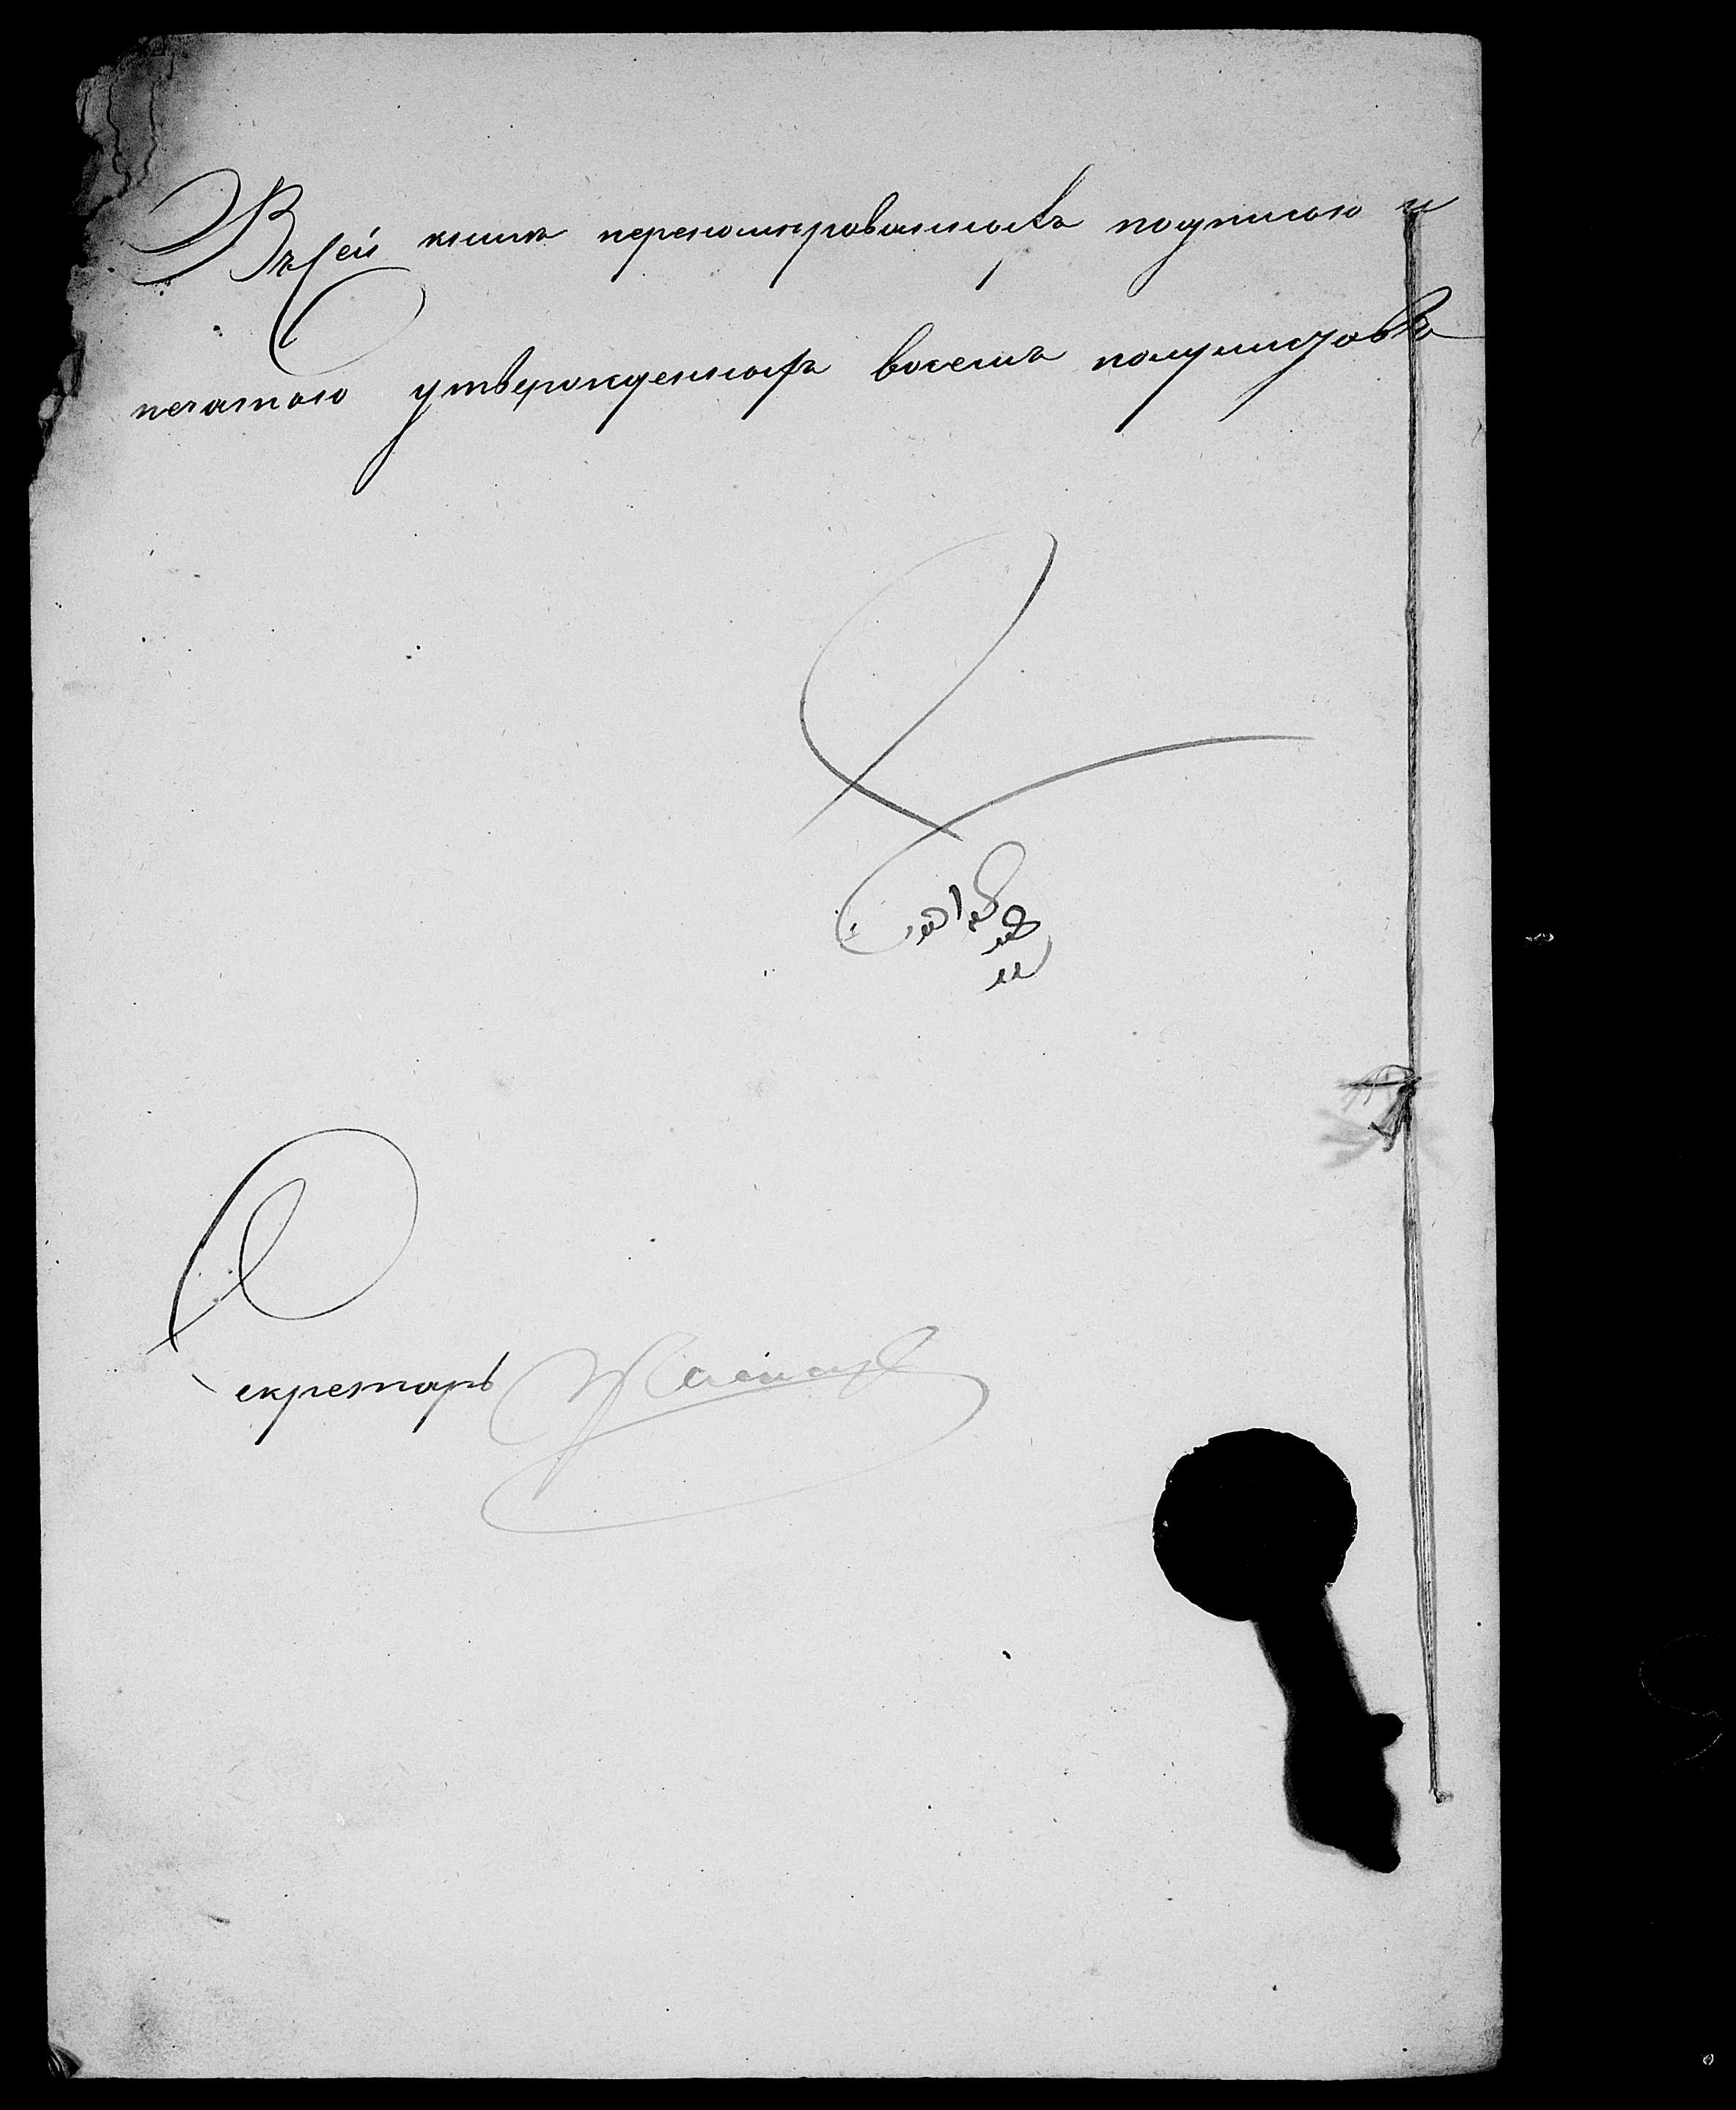 Въ сей книгѣ перенумерованныхъ подписью и
печатью утвержденныхъ восемь полулистовъ
Секретарь